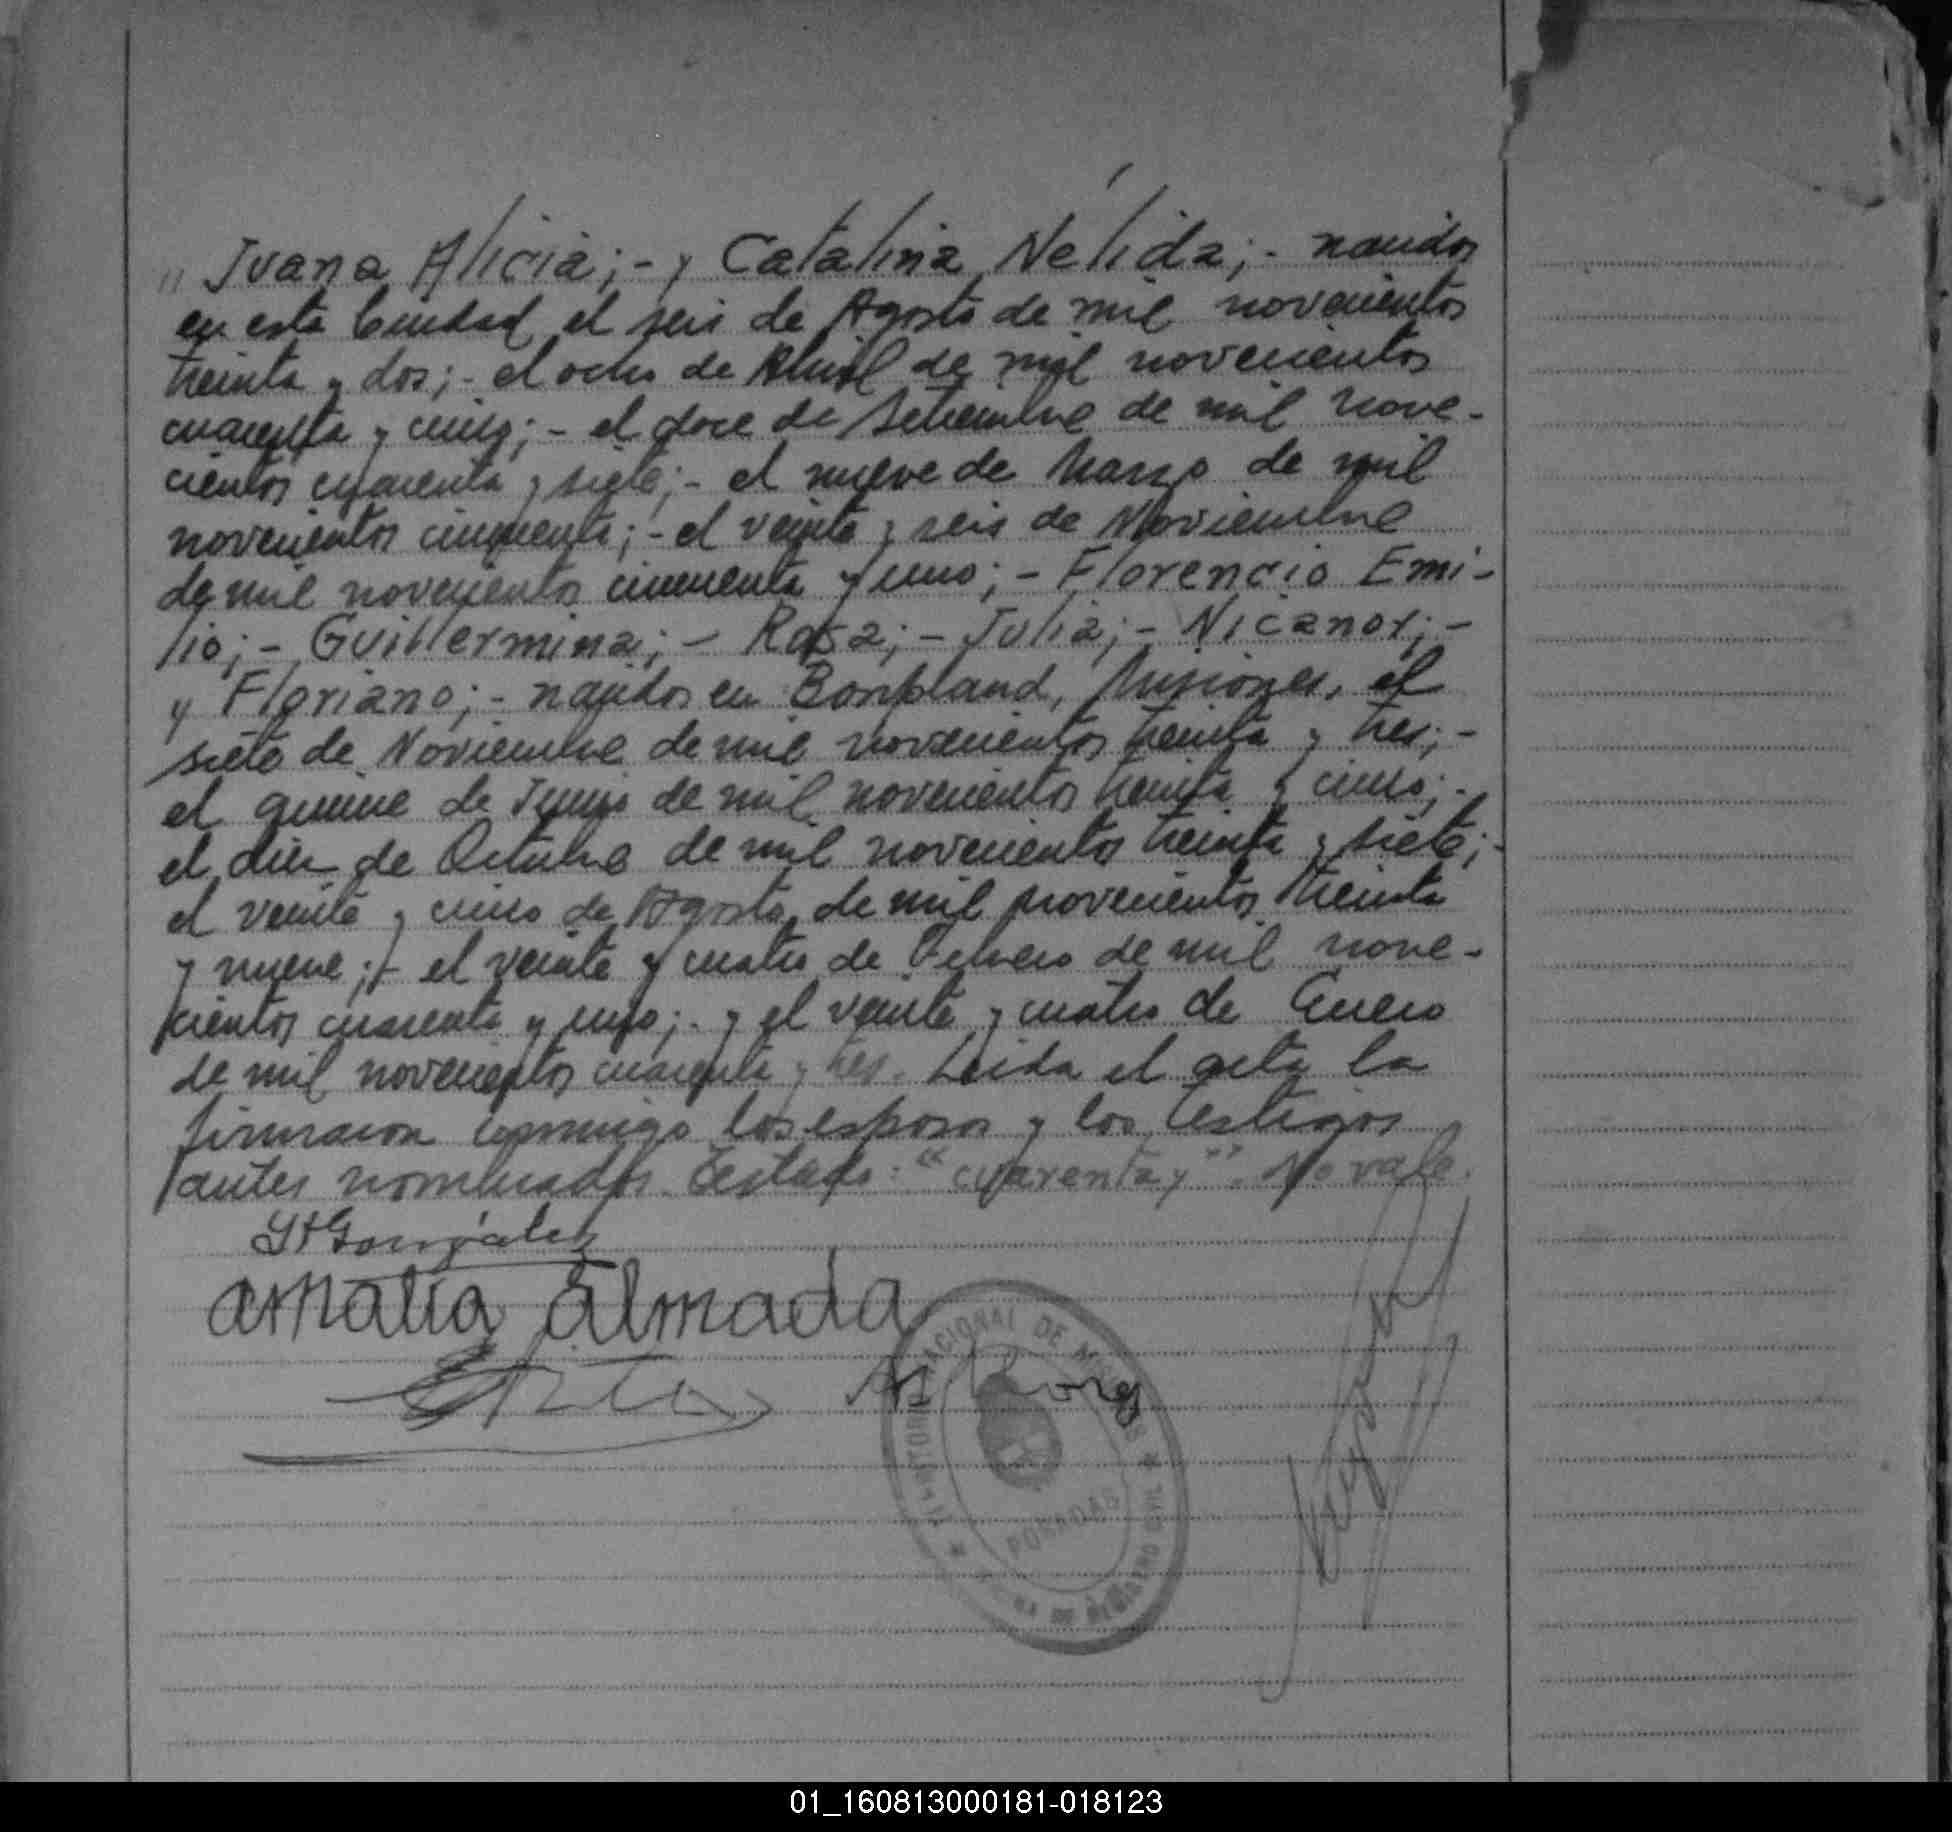 " Juana Alicia;- y Catalina Nélida;- nacidos
en esta Ciudad el seis de Agosto de mil novecientos
treinta y dos;- el ocho de Abril de mil novecientos
cuarenta y cinco;- el doce de Setiembre de mil nove-
cientos cuarenta y siete;- el nueve de Marzo de mil
novecientos cincuenta;- el veinte y seis de Noviembre
de mil novecientos cincuenta y uno;- Florencio Emi-
lio;- Guillermina;- Rosa;- Julia;- Nicanor;-
y Floriano;- nacidos en Bonpland, Misiones, el
siete de Noviembre de mil novecientos treinta y tres;-
el quince de Junio de mil novecientos treinta y cinco;-
el diez de Octubre de mil novecientos treinta y siete;-
el veinte y cinco de Agosto de mil novecientos treinta
y nueve;- el veinte y cuatro de Febrero de mil nove-
cientos cuarenta y uno;- y el veinte y cuatro de Enero
de mil novecientos cuarenta y tres. Leida el acta la
firmaron conmigo los esposos y los testigos
antes nombrados. Testado: "cuarenta y". No vale.
González
Amalia Almada
TERRITORIO NACIONAL DE MISIONES
POSADAS
OFICINA DE REGISTRO CIVIL
01_160813000181-018123